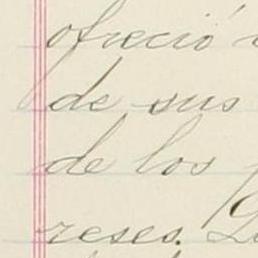 ofreció
de sus
de los
reses.